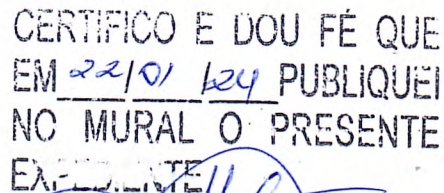 CERTIFICO E DOU FÉ QUE
EM 22/01/24 PUBLIQUEI
NO MURAL O PRESENTE
EXPEDIENTE